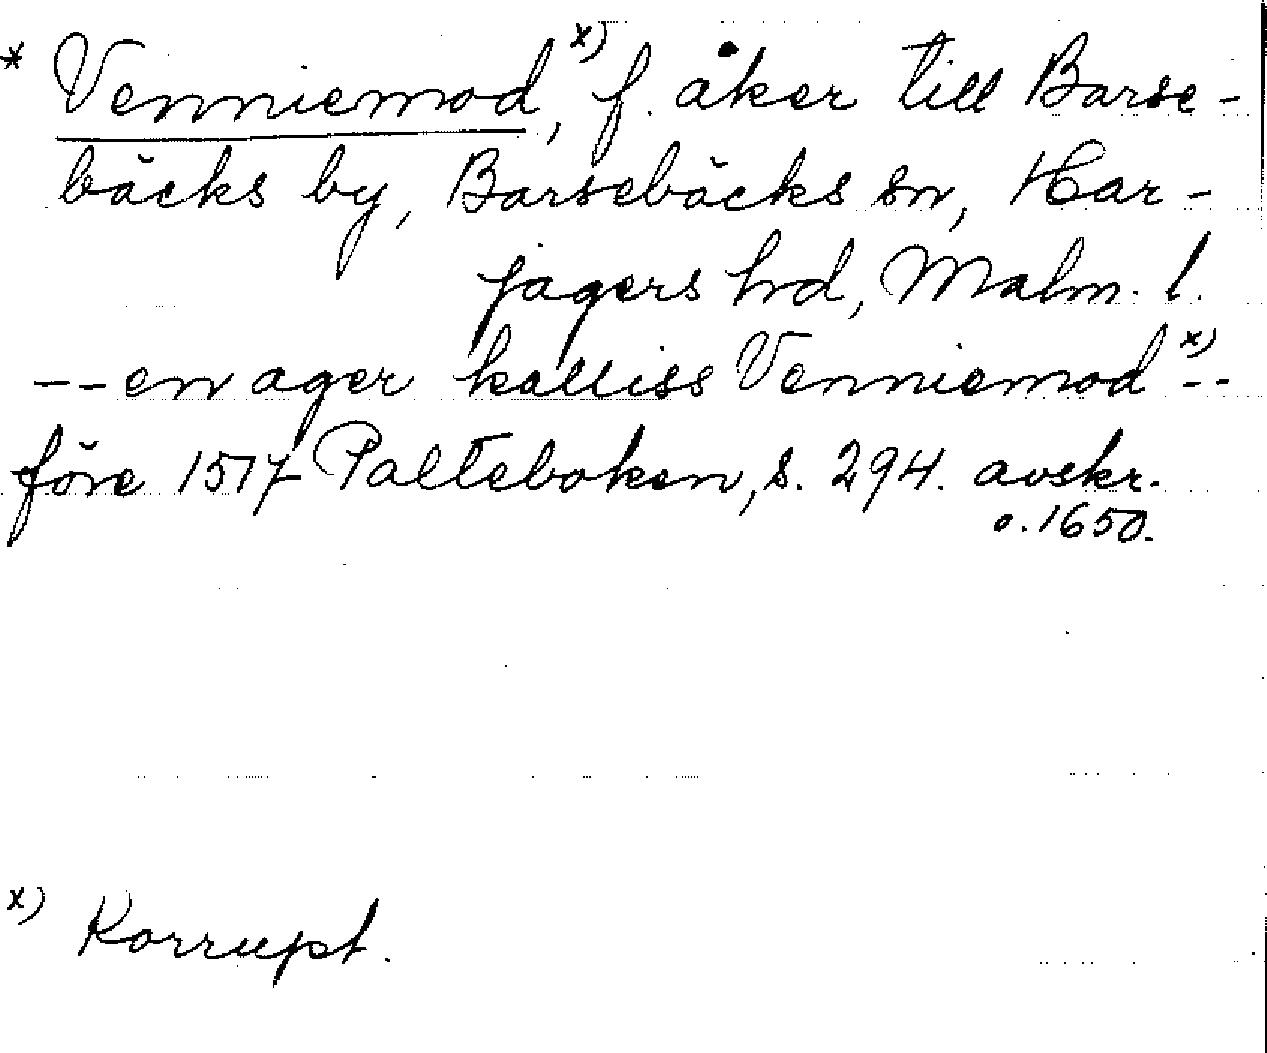 * Venniemod,x) f. åker till Barse-
bäcks by, Barsebäcks sn, Har-
jagers hd, Malm. l.
-- en ager kalliss Venniemod x) --
före 1517 Palteboken, s. 294. avskr.
o. 1650.
x) Korrupt.